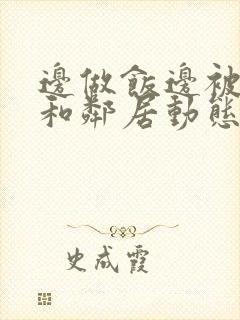 邊做飯邊被
和鄰居動態
史成霞